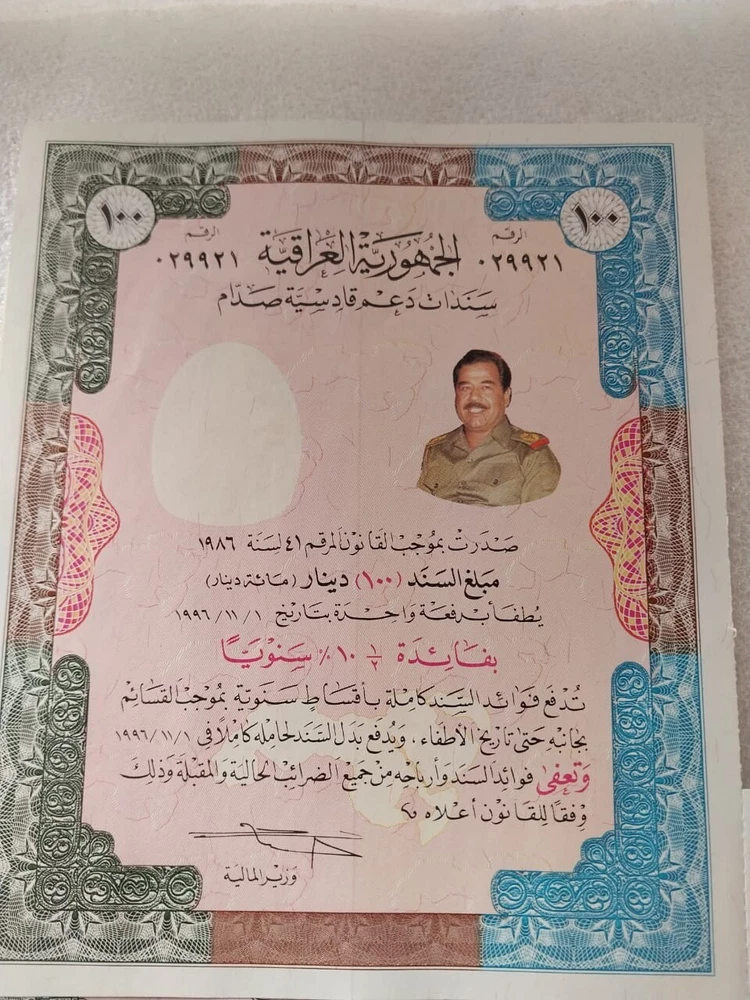 ١٠٠
١٠٠
الرقم
الرقم
٠٢٩٩٢١ الجمهورية العراقية ٠٢٩٩٢١
سندات دعم قادسية صدام
صدرت بموجب القانون المرقم ٤١ لسنة ١٩٨٦
مبلغ السند (١٠٠) دينار (مائة دينار)
يُطفأ بدفعة واحدة بتاريخ ١٩٩٦/١١/١
بفائدة ١/٢ ١٠٪ سنويًا
تُدفع فوائد السند كاملة بأقساط سنوية بموجب القسائم
بجانبه حتى تاريخ الأطفاء . ويُدفع بدل السند لحامله كاملًا في ١٩٩٦/١١/١
وتعفى فوائد السند وأرباحه من جميع الضرائب الحالية والمقبلة وذلك
وفقًا للقانون أعلاه
وزير المالية